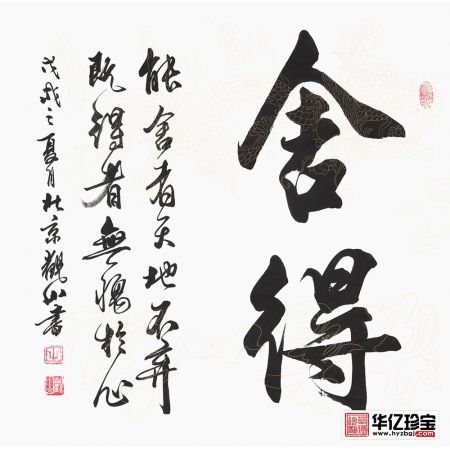 舍得
能舍者天地不弃
既得者無愧於心
戊戌之夏月於京觀山書
华亿珍宝
www.hyzbgj.com